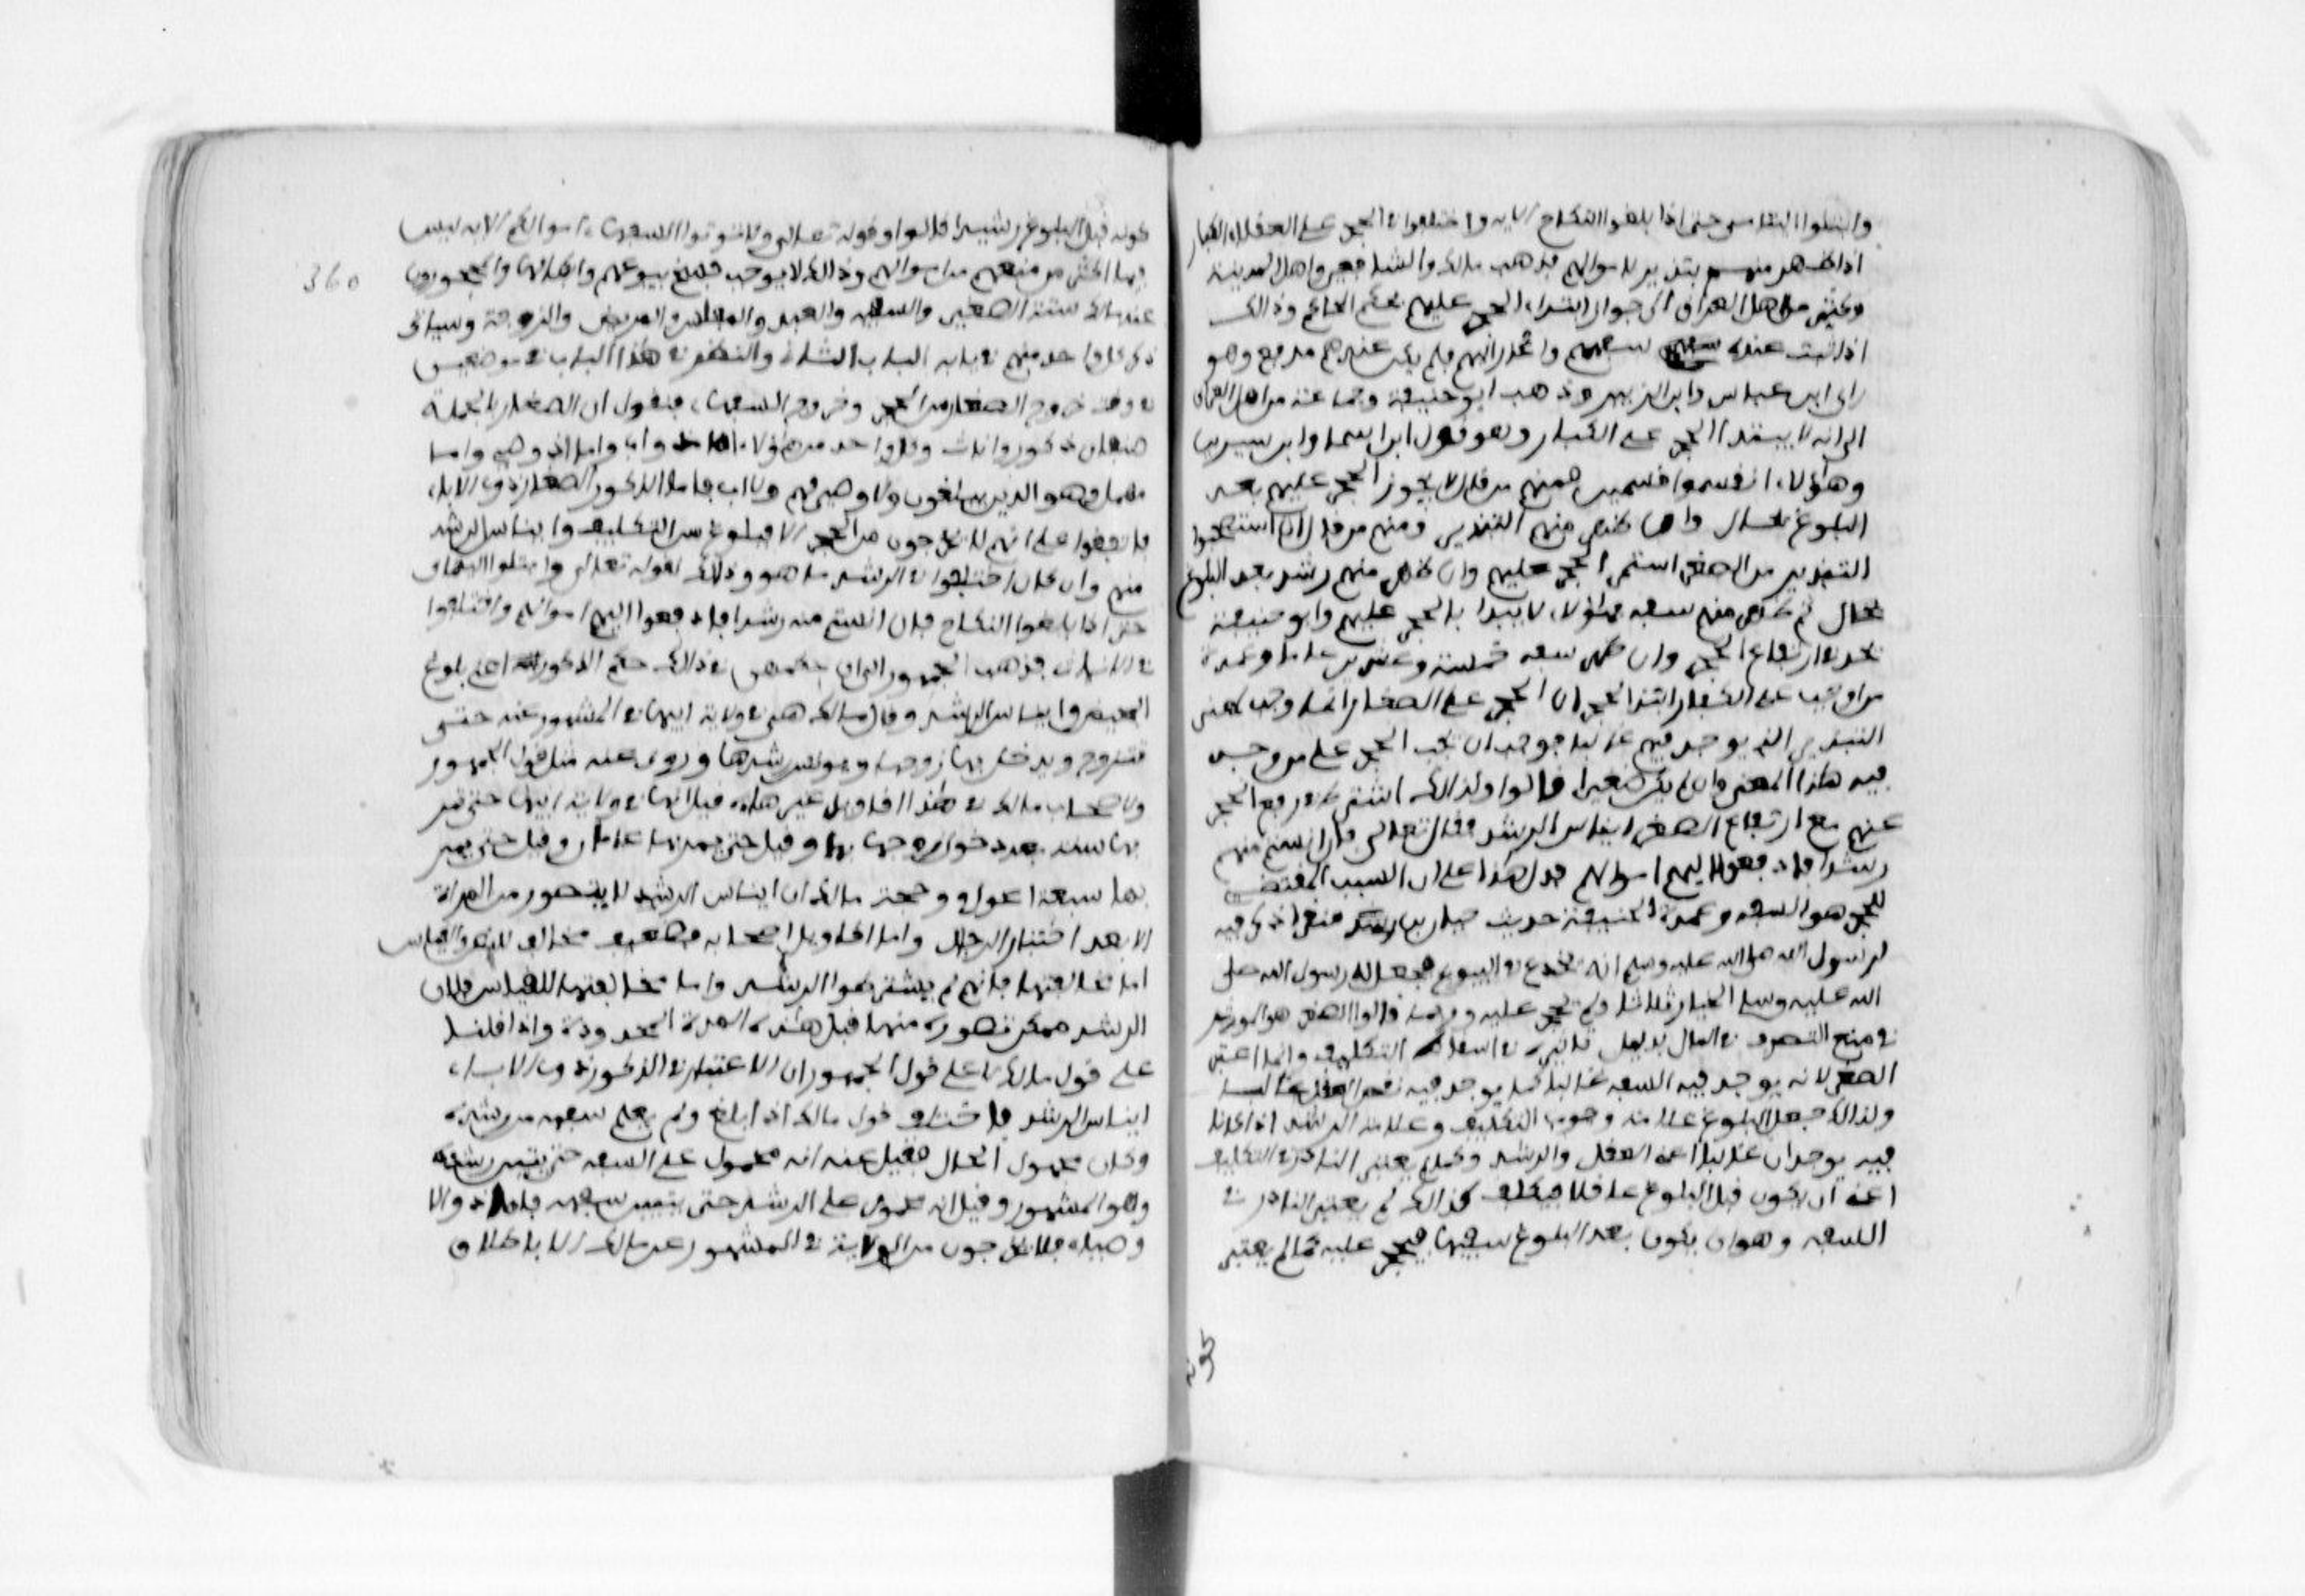 وابتلوا اليتامى حتى اذا بلغوا النكاح الاية واختلفوا في الحجر على العقلاء الكبار
اذا ظهر منهم تبذير لاموالهم فذهب مالك والشافعي واهل المدينة
وكثير من اهل العراق الى جواز ابتداء الحجر عليهم بحكم الحاكم وذالك
اذا ثبت عنده سفههم واعذر اليهم فلم يكن عندهم مدفع وهو
راى ابن عباس وابن الزبير وذهب ابو حنيفة وجماعة من اهل العراق
الى انه لا يبتدا الحجر على الكبار وهو قول ابراهيم وابن سيرين
وهاؤلاء انقسموا قسمين فمنهم من قال لا يجوز الحجر عليهم بعد
البلوغ بحال وان ظهر منهم التبذير ومنهم من قال ان استصحبوا
التبذير من الصغر استمر الحجر عليهم وان ظهر منهم رشد بعد البلوغ
بحال ثم ظهر منهم سفه فهاؤلاء لا يبدا بالحجر عليهم وابو حنيفة
يحد في ارتفاع الحجر وان ظهر سفه خمسة وعشرين عاما وعمدة
من اوجب على الكبار ابتدا الحجر ان الحجر على الصغار انما وجب لمعنى
التبذير الذي يوجد فيهم غالبا فوجب ان يجب الحجر على من وجد
فيه هاذا المعنى وان لم يكن صغيرا قالوا ولذالك اشترط في رفع الحجر
عنهم مع ارتفاع الصغر ايناس الرشد فقال تعالى فان انستم منهم
رشدا فادفعوا اليهم اموالهم فدل هاذا على ان السبب المقتضي
للحجر هو السفه وعمدة الحنيفة حديث حبان بن منقذ اذ ذكر فيه
لرسول الله صلى الله عليه وسلم انه يخدع في البيوع فجعل له رسول الله صلى
الله عليه وسلم الخيار ثلاثا ولم يحجر عليه وربما قالوا الصغر هو الموثر
في منع التصرف في المال بدليل تاثيره في اسقاط التكليف وانما اعتبر
الصغر لانه يوجد فيه السفه غالبا كما يوجد فيه نقص العقل غالبا
ولذالك جعل البلوغ علامة وجوب التكليف وعلامة الرشد اذ كانا
فيه يوجدان غالبا اعني العقل والرشد وكما لم يعتبر النادر في التكليف
اعني ان يكون قبل البلوغ عاقلا فيكلف كذالك لم يعتبر النادر في
السفه وهو ان يكون بعد البلوغ سفيها فيحجر عليه كما لم يعتبر
360
كونه قبل البلوغ رشيدا قالوا وقوله تعالى ولا توتوا السفهاء اموالكم الاية ليس
فيها اكثر من منعهم من اموالهم وذالك لا يوجب فسخ بيوعهم وابطالها والمحجورون
عند مالك ستة الصغير والسفيه والعبد والمفلس والمريض والزوجة وسياتي
ذكر كل واحد منهم في بابه الباب الثاني والنظر في هاذا الباب في موضعين
في وقت خروج الصغار من الحجر وخروج السفهاء فنقول ان الصغار بالجملة
صنفان ذكور واناث وكل واحد من هاؤلاء اما ذو اب واما ذو وصي واما
مهمل وهو الذين يبلغون ولا وصي لهم ولا اب فاما الذكور الصغار ذوو الاباء
فاتفقوا على انهم لا يخرجون من الحجر الا ببلوغ سن التكليف وايناس الرشد
منهم وان كان اختلفوا في الرشد ما هو وذلك لقوله تعالى وابتلوا اليتامى
حتى اذا بلغوا النكاح فان انستم منهم رشدا فادفعوا اليهم اموالهم واختلفوا
في الاناث فذهب الجمهور الى ان حكمهن في ذالك حكم الذكور اعني بلوغ
المحيض وايناس الرشد وقال مالك هي في ولاية ابيها في المشهور عنه حتى
تتزوج ويدخل بها زوجها ويونس رشدها وروي عنه مثل قول الجمهور
ولاصحاب مالك في هاذا اقاويل غير هاذه قيل انها في ولاية ابيها حتى تمر
بها سنة بعد دخول زوجها بها وقيل حتى يمر بها عامان وقيل حتى يمر
بها سبعة اعوام وحجة مالك ان ايناس الرشد لا يتصور من المراة
الا بعد اختبار الرجال واما اقاويل اصحابه فضعيف مخالف للنص والقياس
اما مخالفتها فانهم لم يشترطوا الرشد واما مخالفتها للقياس فلان
الرشد ممكن تصوره منها قبل هذه المدة المحدودة واذا قلنا
على قول مالك لا على قول الجمهور ان الاعتبار في الذكور ذوي الاباء
ايناس الرشد فاختلف قول مالك اذا بلغ ولم يعلم سفهه من رشده
وكان مجهول الحال فقيل عنه انه محمول على السفه حتى يتبين رشده
وهو المشهور وقيل انه محمول على الرشد حتى يتبين سفهه فاما ذووا الا
وصياء فلا يخرجون من الولاية في المشهور عن مالك الا باطلاق